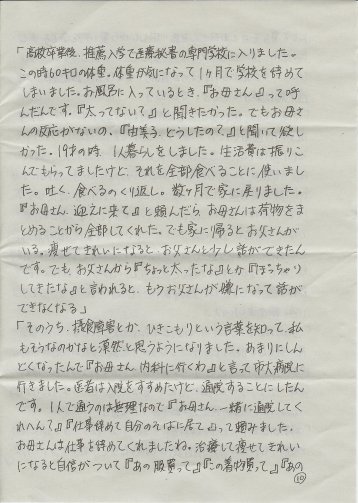 「高校卒業後、推薦入学で医療秘書の専門学校に入りました。
この時60キロの体重。体重が気になって1ヶ月で学校を辞めて
しまいました。お風呂に入っているとき、『お母さん』って呼
んだんです。『太ってないて』と聞きたかった。でもお母さ
んの反応がないの。『由美子、どうしたの？』と聞いて欲し
かった。19才の時、1人暮らしをしました。生活費は振りこ
んでもらってましたけど、それを全部食べることに使いまし
た。吐く、食べるのくり返し。数ヶ月で家に戻りました。
『お母さん、迎えに来て』と頼んだら、お母さんは荷物をま
とめることから全部してくれた。でも家に帰るとお父さんが
いる。痩せてきれいになると、お父さんと少し話ができたん
です。でも、お父さんから『ちょっと太ったな』とか『ぽっちゃり
してきたな』と言われると、もうお父さんが嫌になって話が
できなくなる」
「そのうち、摂食障害とか、ひきこもりという言葉を知って、私
もそうなのかなと漠然と思うようになりました。あまりにしん
どくなったんで『お母さん、内科に行くわ』と言って市大病院に
行きました。医者は入院をすすめたけど、通院することにしたん
です。1人で通うのは無理なので『お母さん、一緒に通院してく
れへん？』『仕事辞めて自分のそばに居て』って頼みました。
お母さんは仕事を辞めてくれましたね。治療して痩せてきれい
になると自信がついて『あの服買って』『この着物買って』『あの
10